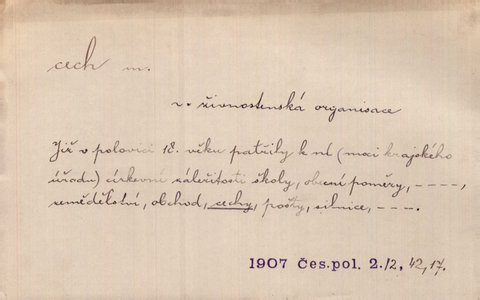 cech m.
v. živnostenská organisace
Již v polovici 18. věku patřily k ní (moci krajského
úřadu) církevní záležitosti školy, obecní poměry, – – – –,
zemědělství, obchod, cechy, pošty, silnice, – – –.
1907 Čes.pol. 2./2, 42, 17.